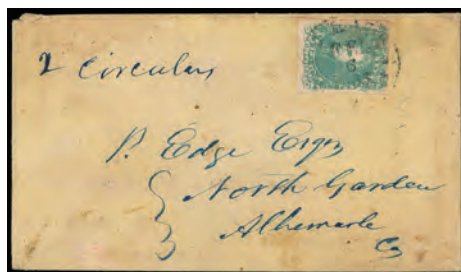 2 Circulars
P. Edge Esqr
North Garden
Albemarle
Co